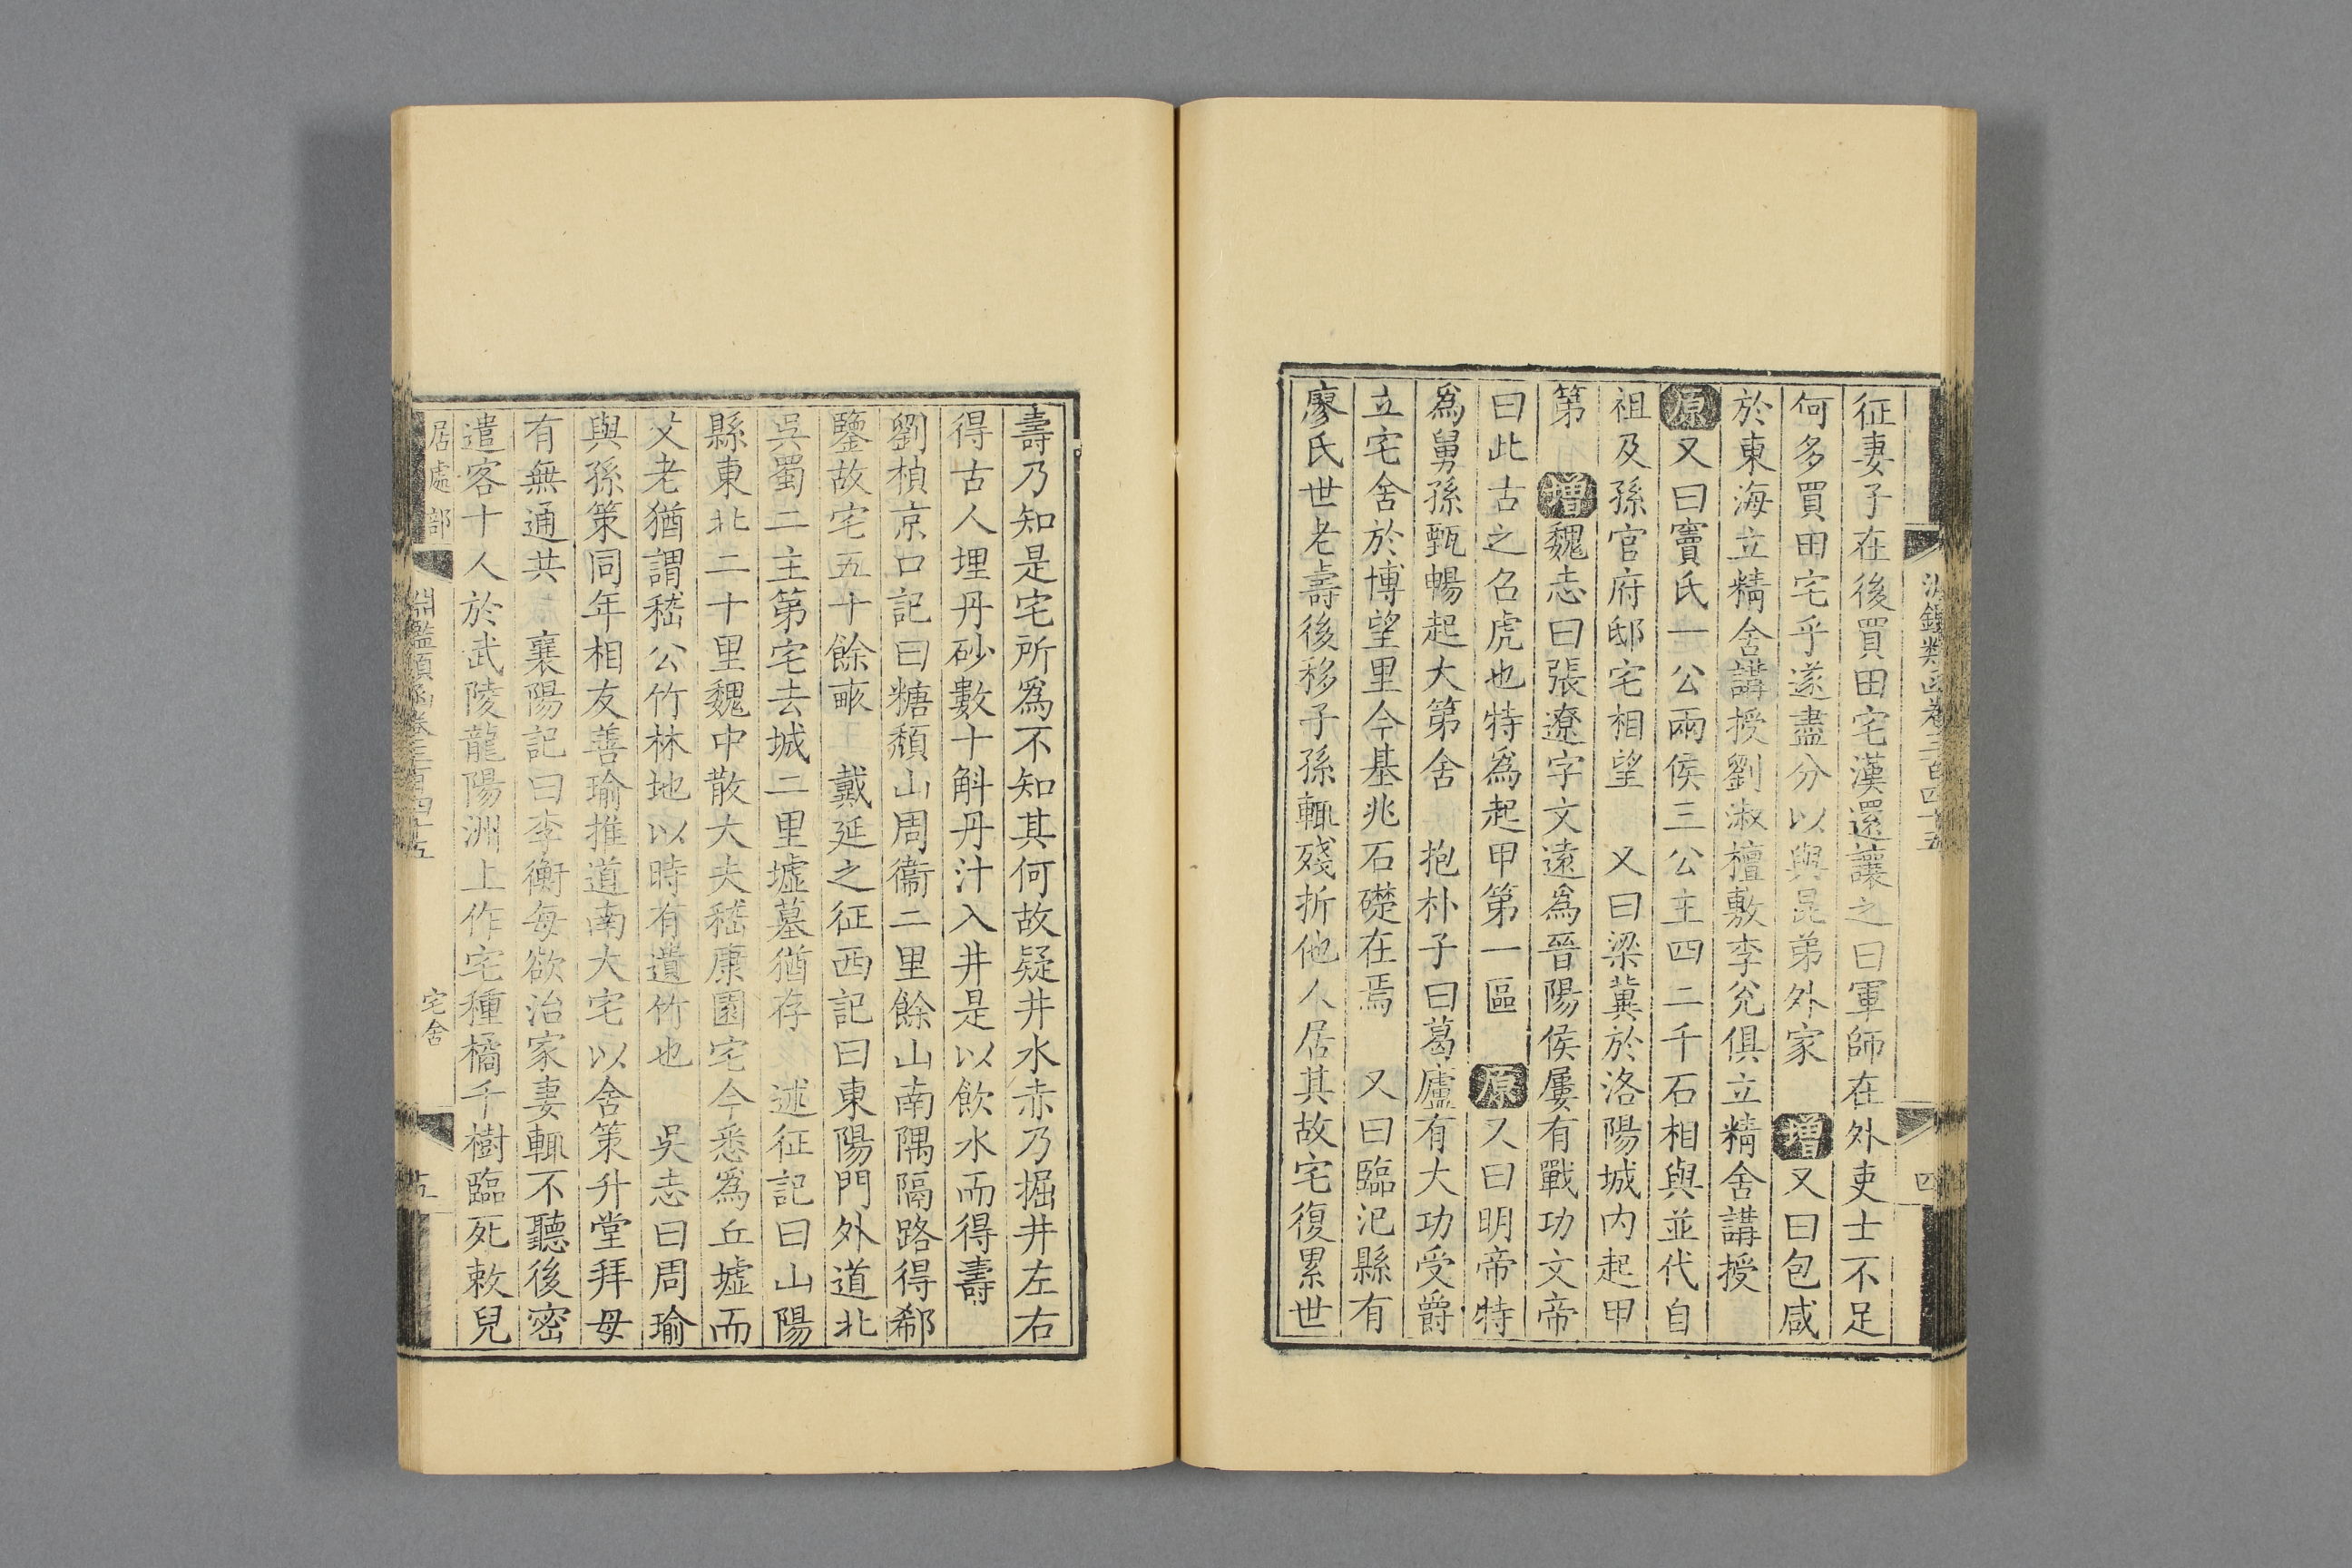 征妻子在後買田宅漢還讓之曰軍師在外吏士不足
何多買田宅乎遂盡分以與昆弟外家　增又曰包咸
於東海立精舍講授劉淑檀敷李兊俱立精舍講授
原又曰竇氏一公兩侯三公主四二千石相與並代自
祖及孫官府邸宅相望　又曰梁冀於洛陽城內起甲
第　增魏志曰張遼字文遠爲晉陽侯屢有戰功文帝
曰此古之召虎也特爲起甲第一區　原又曰明帝特
爲舅孫甄暢起大第舍　抱朴子曰葛廬有大功受爵
立宅舍於博望里今基兆石礎在焉　又曰臨汜縣有
廖氏世老壽後移子孫輒殘折他人居其故宅復累世
壽乃知是宅所爲不知其何故疑井水赤乃掘井左右
得古人埋丹砂數十斛丹汁入井是以飲水而得壽
劉楨京口記曰糖頹山周衞二里餘山南隅隔路得郗
鑒故宅五十餘畝　戴延之征西記曰東陽門外道北
吳蜀二主第宅去城二里墟墓猶存　述征記曰山陽
縣東北二十里魏中散大夫嵇康園宅今悉爲丘墟而
父老猶謂嵇公竹林地以時有遺竹也　吳志曰周瑜
與孫策同年相友善瑜推道南大宅以舍策升堂拜母
有無通共　襄陽記曰李衡每欲治家妻輒不聽後密
遣客十人於武陵龍陽洲上作宅種橘千樹臨死敕兒
居處部　淵鑑類函卷三百四十五　宅舍　五